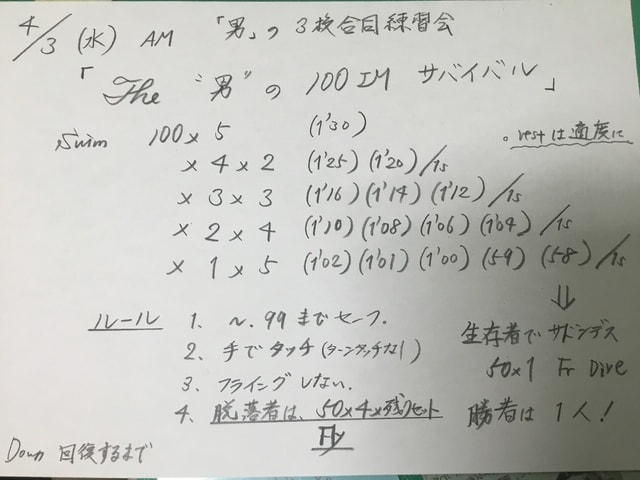 4/3 (水) AM 「男」の3校合同練習会
「The "男" の 100IM サバイバル」
Swim 100×5 (1'30) 。restは適度に
×4×2 (1'25) (1'20)/1s
×3×3 (1'16) (1'14) (1'12)/1s
×2×4 (1'10) (1'08) (1'06) (1'04)/1s
×1×5 (1'02) (1'01) (1'00) (59) (58)/1s
⇓
ルール 1. ~.99までセーフ.
2. 手でタッチ(ターンタッチなし)
3. フライングしない.
4. 脱落者は、50×4×残りセット
Fly
生存者でサドンデス
50×1 Fr Dive
勝者は1人!
Down 回復するまで